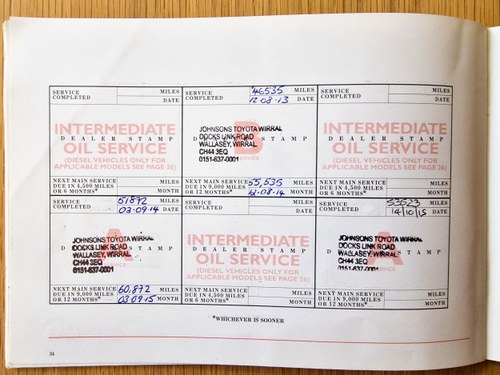 SERVICE COMPLETED MILES
DATE
INTERMEDIATE
DEALER STAMP
OIL SERVICE
(DIESEL VEHICLES ONLY FOR
APPLICABLE MODELS SEE PAGE 26)
NEXT MAIN SERVICE MILES
DUE IN 4,500 MILES
OR 6 MONTHS* MONTH
SERVICE COMPLETED 46535 MILES
12.08.13 DATE
B
DEALER STAMP
JOHNSONS TOYOTA WIRRAL
DOCKS LINK ROAD
WALLASEY, WIRRAL
CH44 3EQ
0151-637-0001
NEXT MAIN SERVICE 55,535 MILES
DUE IN 9,000 MILES
OR 12 MONTHS* 12.08.14 MONTH
SERVICE COMPLETED MILES
DATE
INTERMEDIATE
DEALER STAMP
OIL SERVICE
(DIESEL VEHICLES ONLY FOR
APPLICABLE MODELS SEE PAGE 26)
NEXT MAIN SERVICE MILES
DUE IN 4,500 MILES
OR 6 MONTHS* MONTH
SERVICE COMPLETED 51872 MILES
03.09.14 DATE
A
DEALER STAMP
JOHNSONS TOYOTA WIRRAL
DOCKS LINK ROAD
WALLASEY, WIRRAL
CH44 3EQ
0151-637-0001
NEXT MAIN SERVICE 60,872 MILES
DUE IN 9,000 MILES
OR 12 MONTHS* 03.09.15 MONTH
SERVICE COMPLETED MILES
DATE
INTERMEDIATE
DEALER STAMP
OIL SERVICE
(DIESEL VEHICLES ONLY FOR
APPLICABLE MODELS SEE PAGE 26)
NEXT MAIN SERVICE MILES
DUE IN 4,500 MILES
OR 6 MONTHS* MONTH
SERVICE COMPLETED 53623 MILES
14/10/15 DATE
A
DEALER STAMP
JOHNSONS TOYOTA WIRRAL
DOCKS LINK ROAD
WALLASEY, WIRRAL
CH44 3EQ
0151-637-0001
NEXT MAIN SERVICE MILES
DUE IN 9,000 MILES
OR 12 MONTHS* MONTH
*WHICHEVER IS SOONER